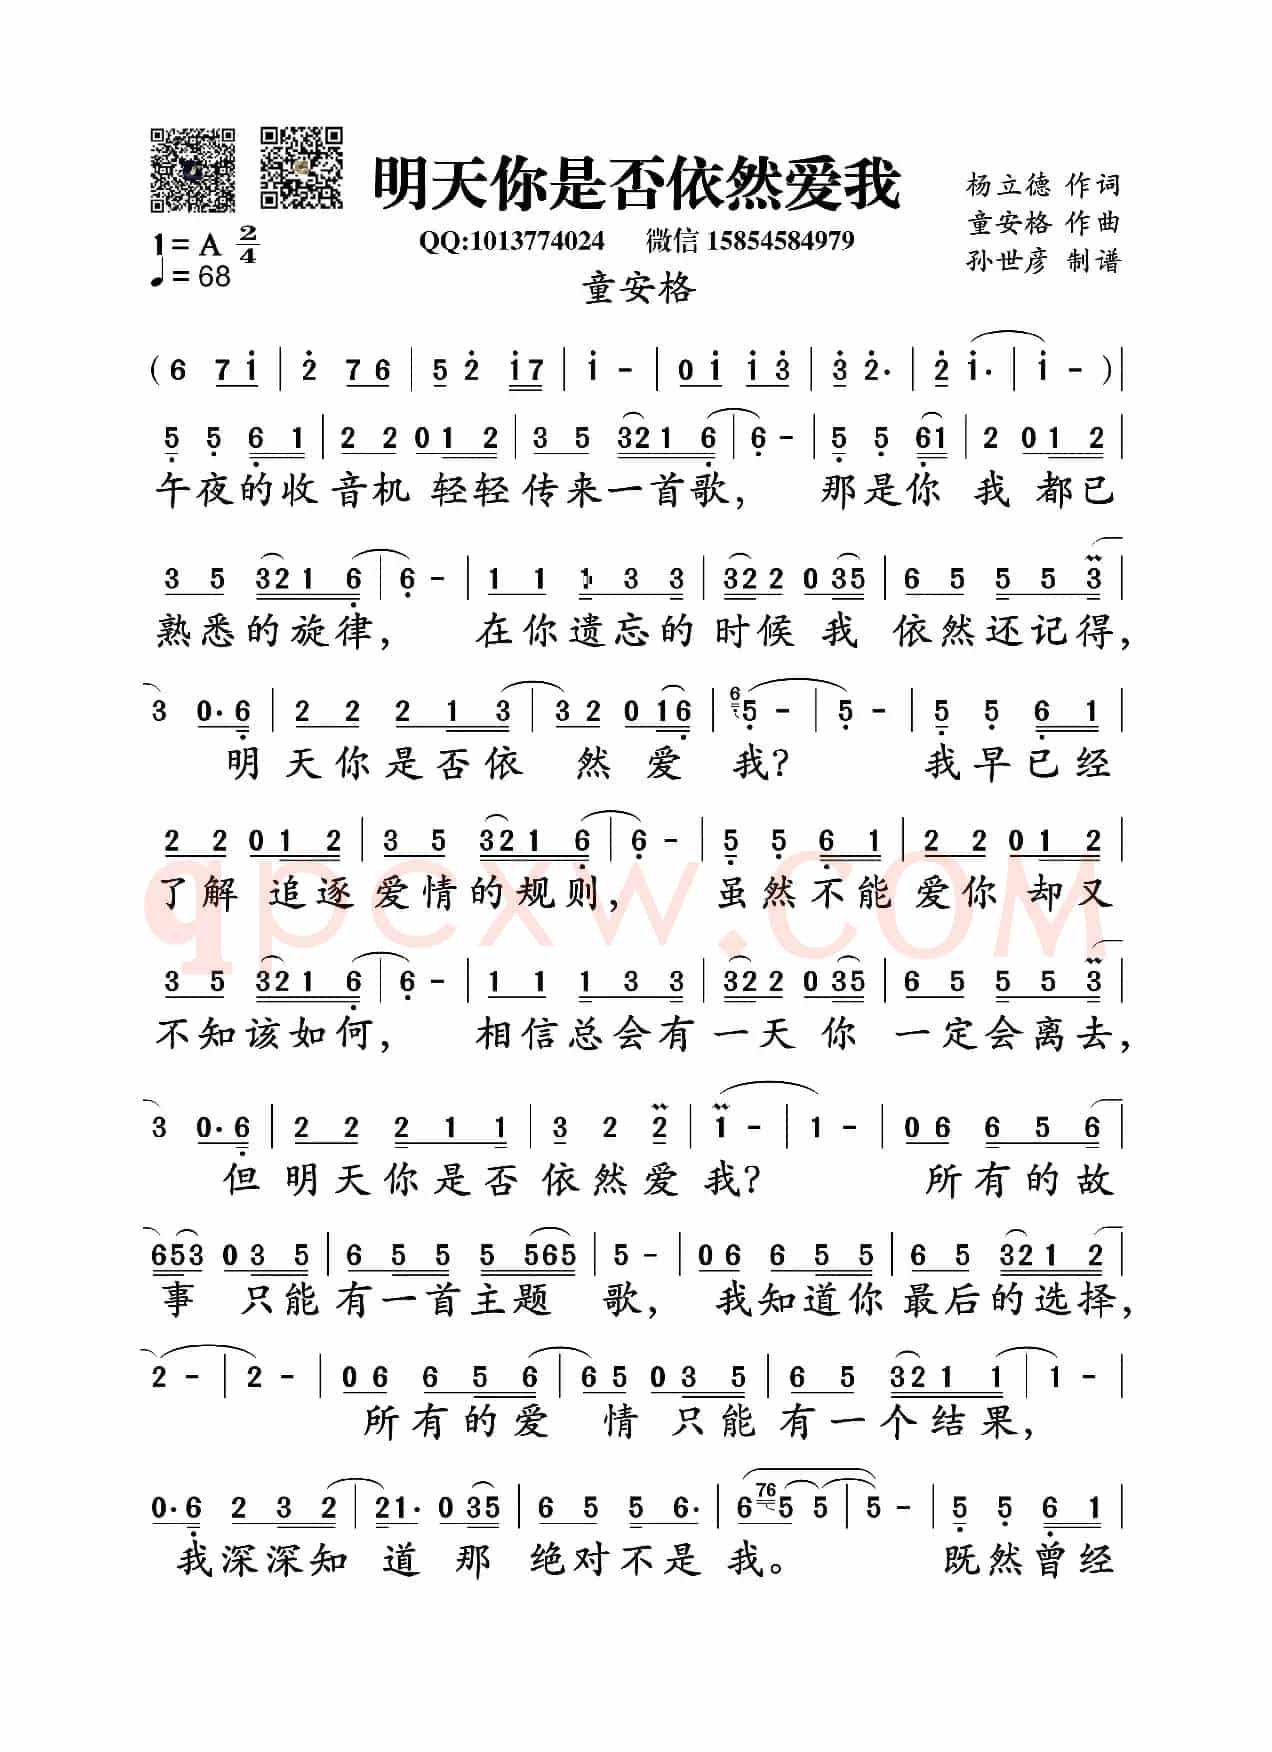 明天你是否依然爱我
杨立德 作词
童安格 作曲
孙世彦 制谱
1=A 2/4
♩=68
QQ:1013774024 微信 15854584979
童安格
( 6 7 i | 2 7 6 | 5 2 i 7 | i - | 0 i i 3 | 3 2· | 2 i· | i - ) |
5 5 6 1 | 2 2 0 1 2 | 3 5 3 2 1 6 | 6 - | 5 5 6 1 | 2 0 1 2 |
午夜的收音机 轻轻传来一首歌， 那是你 我 都已
3 5 3 2 1 6 | 6 - | 1 1 1 3 3 | 3 2 2 0 3 5 | 6 5 5 5 3 |
熟悉的旋律， 在你遗忘的 时候 我 依然还记得，
3 0· 6 | 2 2 2 1 3 | 3 2 0 1 6 | 6 5 - | 5 - | 5 5 6 1 |
明 天你是否依 然 爱 我？ 我早已经
2 2 0 1 2 | 3 5 3 2 1 6 | 6 - | 5 5 6 1 | 2 2 0 1 2 |
了解 追逐 爱情的规则， 虽然不能 爱你 却又
3 5 3 2 1 6 | 6 - | 1 1 1 3 3 | 3 2 2 0 3 5 | 6 5 5 5 3 |
不知该如何， 相信总会有 一天 你 一定会离去，
3 0· 6 | 2 2 2 1 1 | 3 2 2 | 1 - | 1 - | 0 6 6 5 6 |
但 明天你是否 依然爱 我？ 所有的故
6 5 3 0 3 5 | 6 5 5 5 5 6 5 | 5 - | 0 6 6 5 5 | 6 5 3 2 1 2 |
事 只能 有一首主题 歌， 我知道你 最后的选择，
2 - | 2 - | 0 6 6 5 6 | 6 5 0 3 5 | 6 5 3 2 1 1 | 1 - |
所有的爱 情 只能 有一个结果，
0· 6 2 3 2 | 2 1· 0 3 5 | 6 5 5 6· | 6 7 6 5 5 | 5 - | 5 5 6 1 |
我深深知 道 那 绝对不是 我。 既然曾经
qpcxw.COM